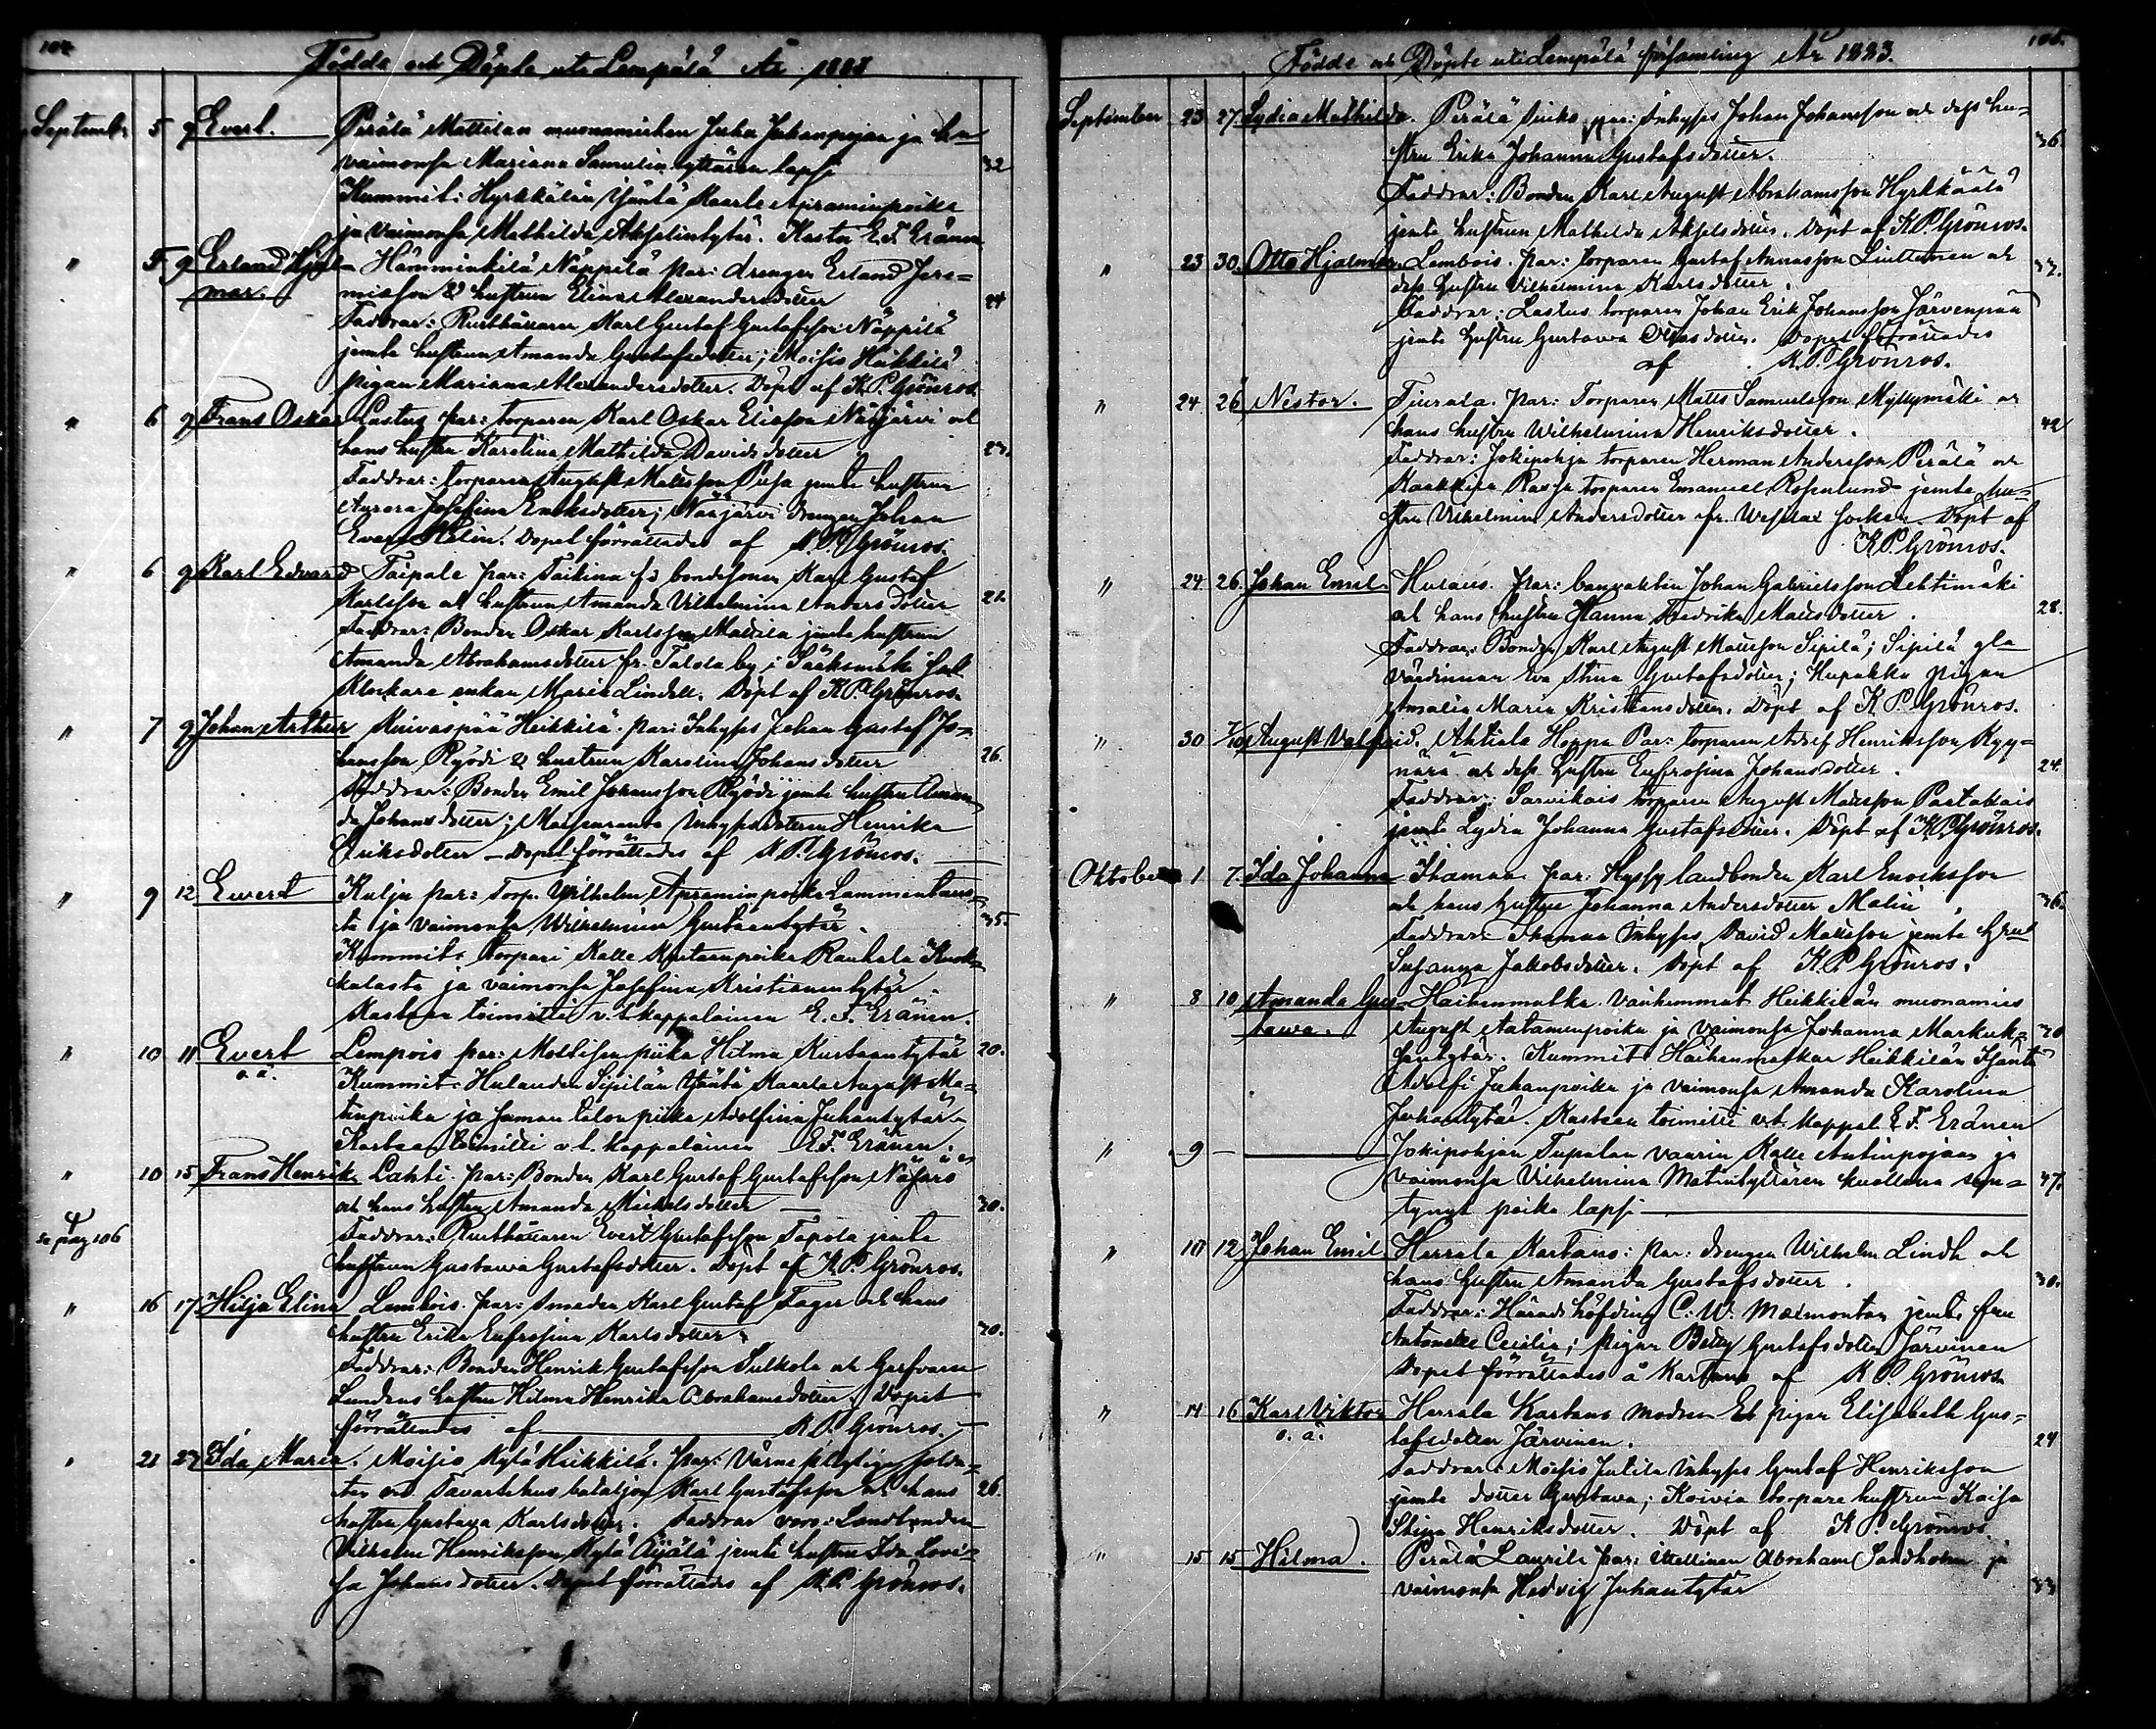 104
Födda och Döpta uti Lempälä År 1883
Septemb. 5 9 Evert. Perälä Mattilan muonamiehen Juha Juhanpojan ja hn
vaimonsa Mariana Samulin tyttären lapsi 32
Kummit: Hyrkkälän Isäntä Kaarle Apraminpoika
ja vaimonsa Mathilda Akselintytär. Kastoi E.F. Eränen
" 5 9 Erland Hjal- Hämminkilä Näppilä par: drengen Erland Jere-
mar. miasson & hustrun Elina Alexandersdotter 24
Faddrar: Rusthållaren Karl Gustaf Gustafsson Näppilä
jemte hustrun Amanda Gustafsdotter; Moisio Heikkilä
pigan Mariana Alexandersdotter. Döpt af K.P. Grönros.
" 6 9 Frans Oskar Lastus par: torparen Karl Oskar Eliasson Näsjärvi och
hans hustru Karolina Mathilda Davidsdotter 23.
Faddrar: torparen August Matsson jemte hustrun
Aurora Josefina Eriksdotter; drengen Johan
Evert Helin. Dopet förrättades af K.P. Grönros.
" 6 9 Karl Edvard Taipale par: Tailina fd bondesonen Karl Gustaf
Karlsson och hustrun Amanda Vilhelmina Andersdotter 21.
Faddrar: Bonden Oskar Karlsson Mattila jemte hustrun
Amanda Abrahamsdotter fr. by i Sääksmäki
Klockare enkan Maria Lindell. Döpt af K.P. Grönros.
" 7 9 Johan Arthur Kuivaspää Heikkilä. par: Inhyses Johan Gustaf Jo-
hansson Pyödi & hustrun Karolina Johansdotter 26.
Faddrar: Bonden Emil Johansson Pyödi jemte hustru Aman
da Johansdotter; inhysesdottren Henrika
Eriksdotter — Dopet förrättades af K.P. Grönros.
" 9 12 Ewert Kulju par: Torp. Wilhelm Apraminpoika Lammintaus-
ta ja vaimonsa Wilhelmina Kustaantytär 35.
Kummit: torpari Kalle Kustaanpoika Rantala Kuok-
kalasta ja vaimonsa Josefina Kristianintytär.
Kasteen toimitti v.t. kappalainen E.F. Eränen.
" 10 11 Evert Lempois par: Mattisen piika Hilma Kustaantytär 20.
o.ä. Kummit: Hulauden Sipilän Isäntä Kaarle August Ma-
tinpoika ja saman talon piika Adolfina Juhantytär
Kasteen toimitti v.t. kappalainen E.F. Eränen.
" 10 15 Frans Henrik Lahti. par: Bonden Karl Gustaf Gustafsson Näsärö
och hans hustru Amanda Michelsdotter 30.
se pag 106 Faddrar: Rusthållaren Evert Gustafsson Tapola jemte
hustrun Gustawa Gustafsdotter. Döpt af K.P. Grönros.
" 16 17 Hilja Elina Lembois. par: Smeden Karl Gustaf Fager och hans
hustru Erika Eufrosina Karlsdotter 30.
Faddrar: Bonden Henrik Gustafsson Sulkola och Garfvaren
Lundens hustru Hilma Henrika Abrahamsdotter. Dopet
förrättades af K.P. Grönros.
" 21 27 Ida Maria. Moisio Kylä Heikkilä. par: Värnepligtige solda-
ten vid Tavastehus bataljon Karl Gustafsson och hans 26.
hustru Gustava Karlsdotter. Faddrar voro: Landbonden
Vilhelm Henriksson Kylä Äijälä jemte hustru Ida Lovi-
sa Johansdotter. Dopet förrättades af K.P. Grönros.
105.
Födde och Döpte uti Lempälä församling År 1883.
September 23 27. Lydia Mathilda. Perälä par: Inhyses Johan Johansson och dess hu-
stru Erika Johanna Gustafsdotter. 36.
Faddrar: Bonden Karl August Abrahamsson Hyrkkäälä
jemte hustrun Mathilda Akselsdotter. Döpt af K.P. Grönros.
" 23 30. Otto Hjalmar. Lembois. par: torparen Gustaf Linttunen och 37.
dess hustru Vilhelmina Karlsdotter.
Faddrar: Lastus torparen Johan Erik Johansson Järvenpää
jemte hustru Gustawa Eliasdotter. Dopet förrättades
af K.P. Grönros.
" 24 26 Nestor. Tiurala. par: Torparen Matts Samuelsson Myllymäki och
hans hustru Wilhelmina Henriksdotter. 42
Faddrar: Jokipohja torparen Herman Andersson Perälä och
torparen Emanuel Rosenlund jemte hu-
stru Vilhelmina Andersdotter fr. Wesilax socken. Döpt af
K.P. Grönros.
" 24 26. Johan Emil. Hulaus. par: banvakten Johan Gabrielsson Lehtimäki
och hans hustru Hanna Fredrika Mattsdotter. 28.
Faddrar: Bonden Karl August Mattsson Sipilä; Sipilä gla
värdinnan Eva Stina Gustafsdotter; Hupakka pigan
Amalia Maria Kristiansdotter. Döpt af K.P. Grönros.
" 30 7/10 August Valfrid. Ahtiala Hoppu Par: torparen Adolf Henriksson Kyy-
närä och dess hustru Eufrosina Johansdotter. 24.
Faddrar: Sarvikais torparen August Mattsson Pastakais
jemte Lydia Johanna Gustafsdotter. Döpt af K.P. Grönros.
Oktober 1 7. Ida Johanna Ihamaa. par: Hyssy landbonden Karl Enoksson
och hans hustru Johanna Andersdotter Malin 36.
Faddrar: Ihamaa Inhyses David Mattsson jemte hru
Susanna Jakobsdotter. Döpt af K.P. Grönros.
" 8 10 Amanda Gus- Haihunmatka. Vanhemmat Heikkilän muonamies
tawa. August Aatamenpoika ja vaimonsa Johanna Markuk- 20
sentytär. Kummit: Haihunmatkan Heikkilän Isäntä
Adolfi Juhanpoika ja vaimonsa Amanda Karolina
Juhantytär. Kasteen toimitti v.t. kappal E.F. Eränen
" 9 — Jokipohjan Tupalan vaarin Kalle Antinpojan ja
vaimonsa Vilhelmina Matintyttären kuollena syn- 47.
tynyt poika lapsi
" 10 12 Johan Emil Herrala Kartano: par: drengen Wilhelm Lindh och
hans hustru Amanda Gustafsdotter. 30.
Faddrar: Häradshöfding C.W. Maimonton jemte fru
Antonette Cecilia; pigan Betty Gustafsdotter Järvinen
Dopet förrättades å Kartano af K.P. Grönros.
" 14 16 Karl Viktor Herrala Kartano modren: pigan Elisabeth Gus-
o.ä. tafsdotter Järvinen. 24
Faddrar: Moisio Jutila Inhyses Gustaf Henriksson
jemte dotter Gustava; Koivia torpare hustrun Kaisa
Stina Henriksdotter. Döpt af K.P. Grönros.
" 15 15 Hilma. Perälä Laurila par: itsellinen Abraham Sandholm ja
vaimonsa Hedvig Juhantytär 33